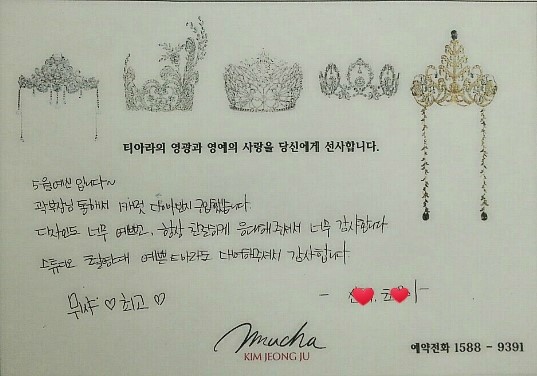 티아라의 영광과 영예의 사랑을 당신에게 선사합니다.
5월예신 입니다~
곽부장님 통해서 1캐럿 다이아반지 구입했습니다
디자인도 너무 예쁘고, 항상 친절하게 응대해주셔서 너무 감사합니다
스튜디오 촬영때 예쁜 티아라도 대여해주셔서 감사합니다
뮈샤 ♡ 최고 ♡
mucha
KIM JEONG JU
예약전화 1588 - 9391